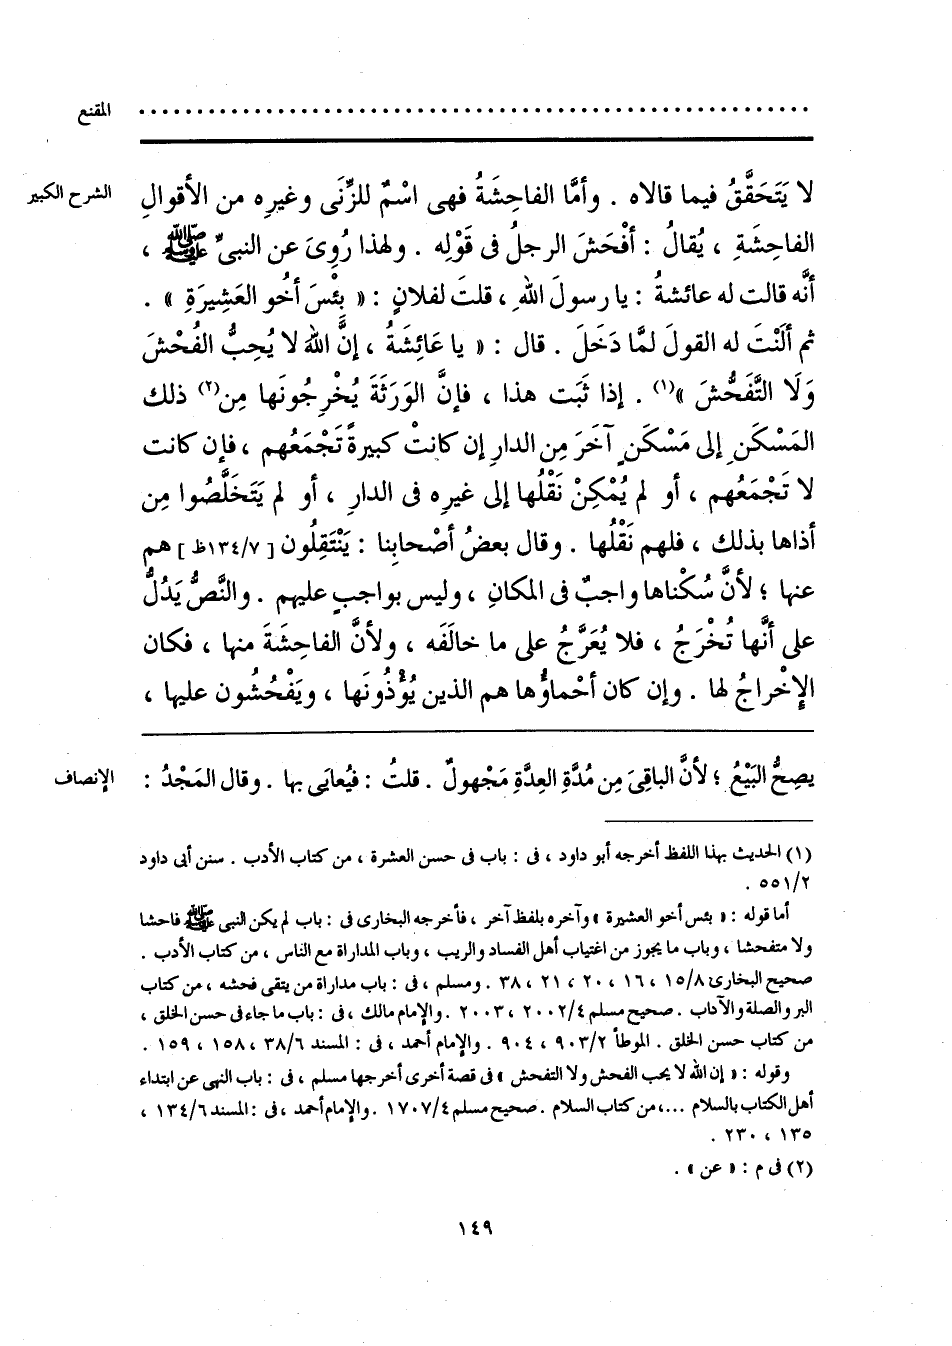 المقنع ........................................................
الشرح الكبير لا يَتَحَقَّقُ فيما قالاه . وأمَّا الفاحِشَةُ فهى اسْمٌ للزِّنَى وغيرِه من الأقوالِ
الفاحِشَةِ ، يُقالُ : أفْحَشَ الرجلُ فى قَوْلِه . ولهذا رُوِىَ عن النبىِّ ﷺ ،
أنَّه قالت له عائشةُ : يا رسولَ اللهِ ، قلتَ لفلانٍ : « بِئْسَ أخُو العَشِيرَةِ » .
ثم ألَنْتَ له القولَ لمَّا دَخَلَ . قال : « يا عَائِشَةُ ، إنَّ اللهَ لا يُحِبُّ الفُحْشَ
وَلَا التَّفَحُّشَ »(١) . إذا ثَبَت هذا ، فإنَّ الوَرَثَةَ يُخْرِجُونَها مِن(٢) ذلك
المَسْكَنِ إلى مَسْكَنٍ آخَرَ مِن الدارِ إن كانتْ كبيرةً تَجْمَعُهم ، فإن كانت
لا تَجْمَعُهم ، أو لم يُمْكِنْ نَقْلُها إلى غيرِه فى الدارِ ، أو لم يَتَخَلَّصُوا مِن
أذاها بذلك ، فلهم نَقْلُها . وقال بعضُ أصْحابِنا : يَنْتَقِلُون [ ١٣٤/٧ظ ] هم
عنها ؛ لأنَّ سُكْناها واجبٌ فى المكانِ ، وليس بواجبٍ عليهم . والنَّصُّ يَدُلُّ
على أنَّها تُخْرَجُ ، فلا يُعَرَّجُ على ما خالَفَه ، ولأنَّ الفاحِشَةَ منها ، فكان
الإِخْراجُ لها . وإن كان أحْماؤُها هم الذين يُؤْذُونَها ، ويَفْحُشُون عليها ،
الإنصاف يصِحُّ البَيْعُ ؛ لأنَّ الباقِىَ مِن مُدَّةِ العِدَّةِ مَجْهولٌ . قلتُ : فيُعايَى بها . وقال المَجْدُ :
(١) الحديث بهذا اللفظ أخرجه أبو داود ، فى : باب فى حسن العشرة ، من كتاب الأدب . سنن أبى داود
٥٥١/٢ .
أما قوله : « بئس أخو العشيرة » وآخره بلفظ آخر ، فأخرجه البخارى فى : باب لم يكن النبى ﷺ فاحشا
ولا متفحشا ، وباب ما يجوز من اغتياب أهل الفساد والريب ، وباب المداراة مع الناس ، من كتاب الأدب .
صحيح البخارى ١٥/٨ ، ١٦ ، ٢٠ ، ٢١ ، ٣٨ . ومسلم ، فى : باب مداراة من يتقى فحشه ، من كتاب
البر والصلة والآداب . صحيح مسلم ٢٠٠٢/٤ ، ٢٠٠٣ . والإمام مالك ، فى : باب ما جاء فى حسن الخلق ،
من كتاب حسن الخلق . الموطأ ٩٠٣/٢ ، ٩٠٤ . والإمام أحمد ، فى : المسند ٣٨/٦ ، ١٥٨ ، ١٥٩ .
وقوله : « إن الله لا يحب الفحش ولا التفحش » فى قصة أخرى أخرجها مسلم ، فى : باب النهى عن ابتداء
أهل الكتاب بالسلام ... ، من كتاب السلام . صحيح مسلم ١٧٠٧/٤ . والإمام أحمد ، فى : المسند ١٣٤/٦ ،
١٣٥ ، ٢٣٠ .
(٢) فى م : « عن » .
١٤٩